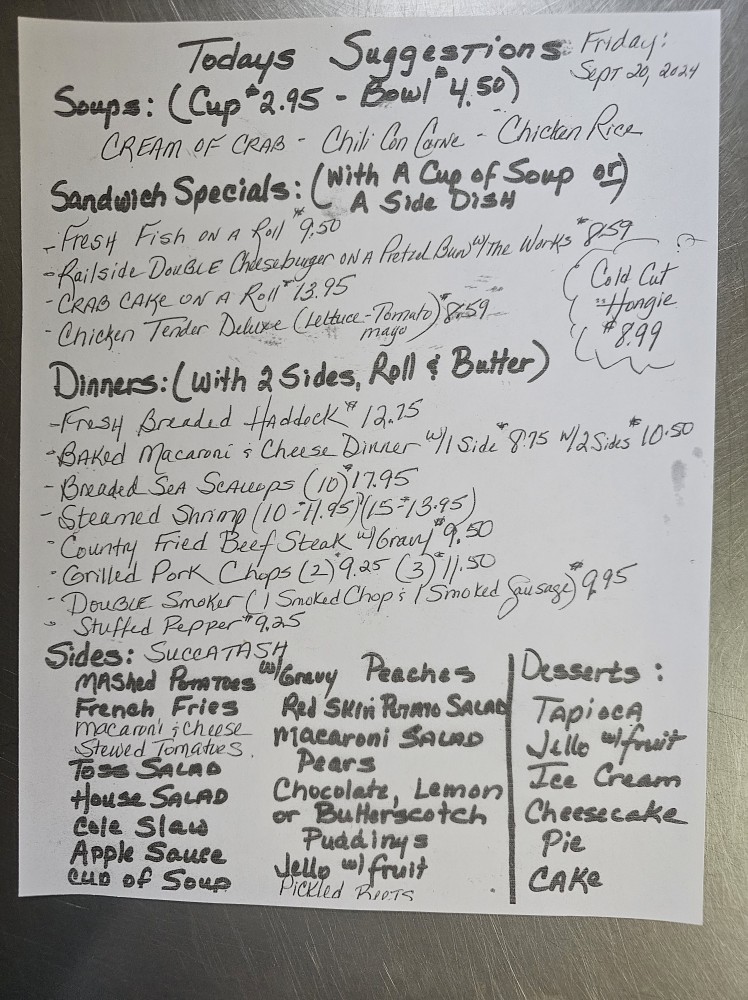 Todays Suggestions: Friday:
Sept 20, 2024
Soups: (Cup $2.95 - Bowl $4.50)
CREAM OF CRAB - Chili Con Carne - Chicken Rice
Sandwich Specials: (With A Cup of Soup or)
A Side Dish
- Fresh Fish on a Roll $9.50
- Railside Double Cheeseburger on a Pretzel Bun w/The Works $8.59
- CRAB CAKE ON A Roll $13.95
- Chicken Tender Deluxe (Lettuce-Tomato) $8.59
mayo
Cold Cut
Hoagie
$8.99
Dinners: (With 2 Sides, Roll & Butter)
- Fresh Breaded Haddock $12.75
- BAKED Macaroni & Cheese Dinner w/1 Side $8.75 w/2 Sides $10.50
- Breaded Sea Scallops (10) $17.95
- Steamed Shrimp (10-$11.95) (15-$13.95)
- Country Fried Beef Steak w/Gravy $9.50
- Grilled Pork Chops (2) $9.25 (3) $11.50
- Double Smoker (1 Smoked Chop & 1 Smoked Sausage) $9.95
- Stuffed Pepper $9.25
Sides: SUCCATASH
MASHed Potatoes w/Gravy
French Fries
Macaroni & Cheese
Stewed Tomatoes
Toss SALAD
House SALAD
Cole Slaw
Apple Sauce
Cup of Soup
Peaches
Red Skin Potato Salad
Macaroni SALAD
Pears
Chocolate, Lemon
or Butterscotch
Puddings
Jello w/fruit
Pickled Beets
Desserts:
TAPIOCA
Jello w/fruit
Ice Cream
Cheesecake
Pie
CAKe